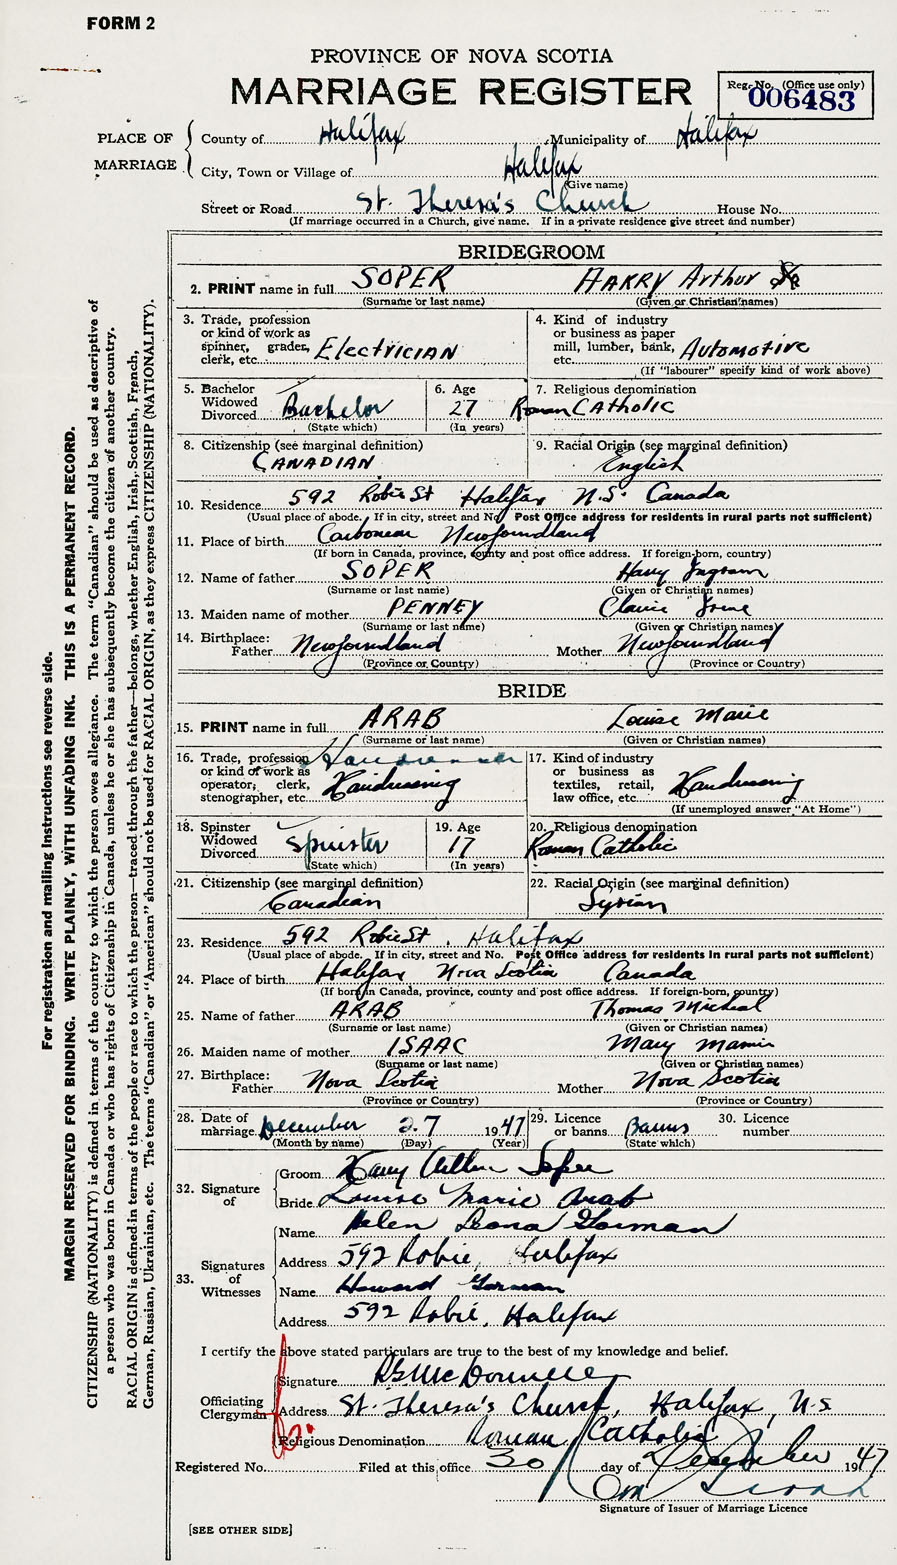 FORM 2
PROVINCE OF NOVA SCOTIA
MARRIAGE REGISTER
Reg. No. (Office use only)
006483
PLACE OF MARRIAGE
County of Halifax Municipality of Halifax
City, Town or Village of Halifax
(Give name)
Street or Road St. Theresa's Church House No.
(If marriage occurred in a Church, give name. If in a private residence give street and number)
BRIDEGROOM
2. PRINT name in full SOPER HARRY Arthur
(Surname or last name) (Given or Christian names)
3. Trade, profession or kind of work as spinner, grader, clerk, etc. Electrician
4. Kind of industry or business as paper mill, lumber, bank, etc. Automotive
(If "labourer" specify kind of work above)
5. Bachelor Widowed Divorced Bachelor
(State which)
6. Age 27
(In years)
7. Religious denomination
Roman Catholic
8. Citizenship (see marginal definition)
CANADIAN
9. Racial Origin (see marginal definition)
English
10. Residence 592 Robie St Halifax N.S. Canada
(Usual place of abode. If in city, street and No. Post Office address for residents in rural parts not sufficient)
11. Place of birth Carbonear Newfoundland
(If born in Canada, province, county and post office address. If foreign-born, country)
12. Name of father SOPER Harry Ingram
(Surname or last name) (Given or Christian names)
13. Maiden name of mother PENNEY Irene
(Surname or last name) (Given or Christian names)
14. Birthplace: Father Newfoundland Mother Newfoundland
(Province or Country) (Province or Country)
BRIDE
15. PRINT name in full ARAB Louise Marie
(Surname or last name) (Given or Christian names)
16. Trade, profession or kind of work as operator, clerk, stenographer, etc. Hairdresser Hairdressing
17. Kind of industry or business as textiles, retail, law office, etc. Hairdressing
(If unemployed answer "At Home")
18. Spinster Widowed Divorced Spinster
(State which)
19. Age 17
(In years)
20. Religious denomination
Roman Catholic
21. Citizenship (see marginal definition)
Canadian
22. Racial Origin (see marginal definition)
Syrian
23. Residence 592 Robie St. Halifax
(Usual place of abode. If in city, street and No. Post Office address for residents in rural parts not sufficient)
24. Place of birth Halifax Nova Scotia Canada
(If born in Canada, province, county and post office address. If foreign-born, country)
25. Name of father ARAB Thomas Micheal
(Surname or last name) (Given or Christian names)
26. Maiden name of mother ISAAC Mary Mamie
(Surname or last name) (Given or Christian names)
27. Birthplace: Father Nova Scotia Mother Nova Scotia
(Province or Country) (Province or Country)
28. Date of marriage December 27 1947
(Month by name) (Day) (Year)
29. Licence or banns Banns
(State which)
30. Licence number
32. Signature of
Groom Harry Arthur Soper
Bride Louise Marie Arab
33. Signatures of Witnesses
Name Helen Leona Gorman
Address 592 Robie, Halifax
Name Howard Gorman
Address 592 Robie, Halifax
I certify the above stated particulars are true to the best of my knowledge and belief.
Officiating Clergyman
Signature
Address St. Theresa's Church, Halifax, N.S.
Religious Denomination Roman Catholic
Registered No. Filed at this office 30 day of December 1947
Signature of Issuer of Marriage Licence
[SEE OTHER SIDE]
For registration and mailing instructions see reverse side.
MARGIN RESERVED FOR BINDING. WRITE PLAINLY, WITH UNFADING INK. THIS IS A PERMANENT RECORD.
CITIZENSHIP (NATIONALITY) is defined in terms of the country to which the person owes allegiance. The term "Canadian" should be used as descriptive of
a person who was born in Canada or who has rights of Citizenship in Canada, unless he or she has subsequently become the citizen of another country.
RACIAL ORIGIN is defined in terms of the people or race to which the person—traced through the father—belongs, whether English, Irish, Scottish, French,
German, Russian, Ukrainian, etc. The terms "Canadian" or "American" should not be used for RACIAL ORIGIN, as they express CITIZENSHIP (NATIONALITY).